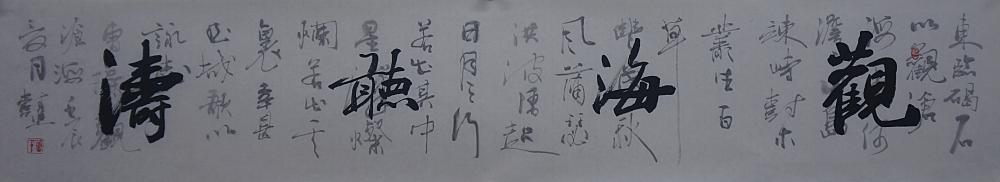 觀海聽濤
東臨碣石
以觀滄
海水何
澹澹山島
竦峙樹木
叢生百
草
豐茂秋
風蕭瑟
洪波湧起
日月之行
若出其中
星漢燦
爛若出其
裏幸甚
至哉歌以
詠志
曹操觀
滄海壬辰